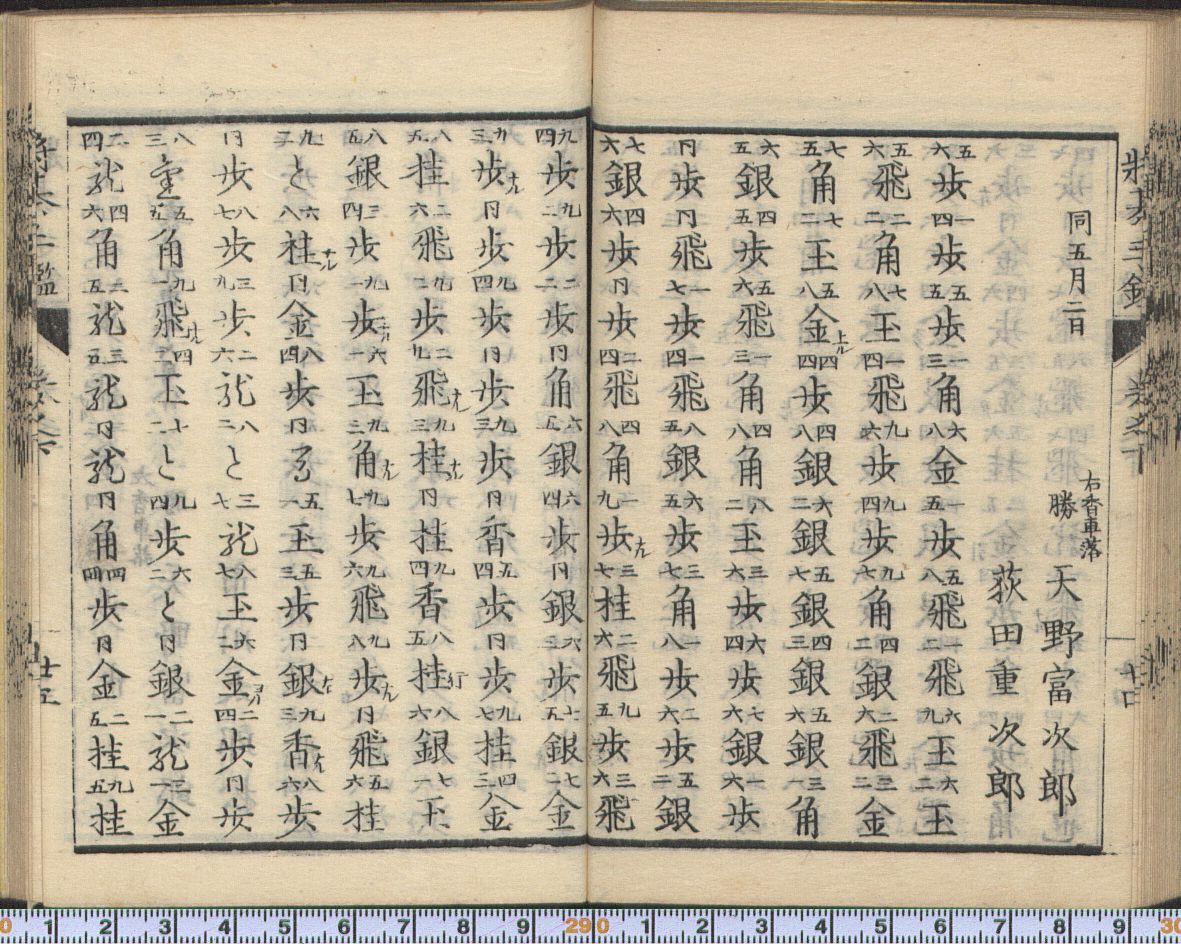 将棊手鑑
巻之下
同五月二日
右香車落
勝 天野富次郎
荻田重次郎
五六歩 一四歩 五五歩 一三角 六八金 一五歩 五八飛 一二飛 六九玉 六二玉
五六飛 二二角 七八玉 一四飛 九六歩 九四歩 九七角 四二銀 二六飛 三二金
七五角 七二玉 五八金上ル 四四歩 四八銀 六二銀 五七銀 四三銀 五六銀 三一角
六五銀 四五歩 五六飛 一三角 四八角 八二玉 三六歩 六四歩 七六銀 一六歩
同歩 同飛 一七歩 一四飛 八五銀 六五歩 三七角 八歩 二六歩 五二銀
七六銀 四六歩 同歩 二四飛 四八角 一九歩ナル 三七桂 二六飛 九五歩 三六飛
九四歩 九二歩 二二歩 同角 六五銀 六四歩 同銀 六三歩 七五銀 七二金
九三歩ナル 同歩 九四歩 同歩 九三歩 同香 五四歩 同歩 九七桂 四三金
八五桂 二六飛 九二歩 二九飛ナル 九三桂ナル 同桂 九四香 八五桂行 八六銀 七一玉
八五銀 三四歩 九一歩ナル 六一玉 九三角ナル 九七歩 九六飛 九八歩ナル 同飛 五六桂
九二と 六八桂ナル 同金 八四歩 同馬 五一玉 五三歩 同銀左 九三香ナル 八六歩
同歩 八七歩 三九歩 二六龍 八二と 三七龍 八七玉 六二金ヨル 二四歩 同歩
八三 五五角 九一飛ナル 四二玉 と 九四歩 六二と 同銀 二一龍 三一金
二四龍 四六角 三五龍 三五龍 同龍 同角 四四歩 同金 二五桂 九五桂
廿五